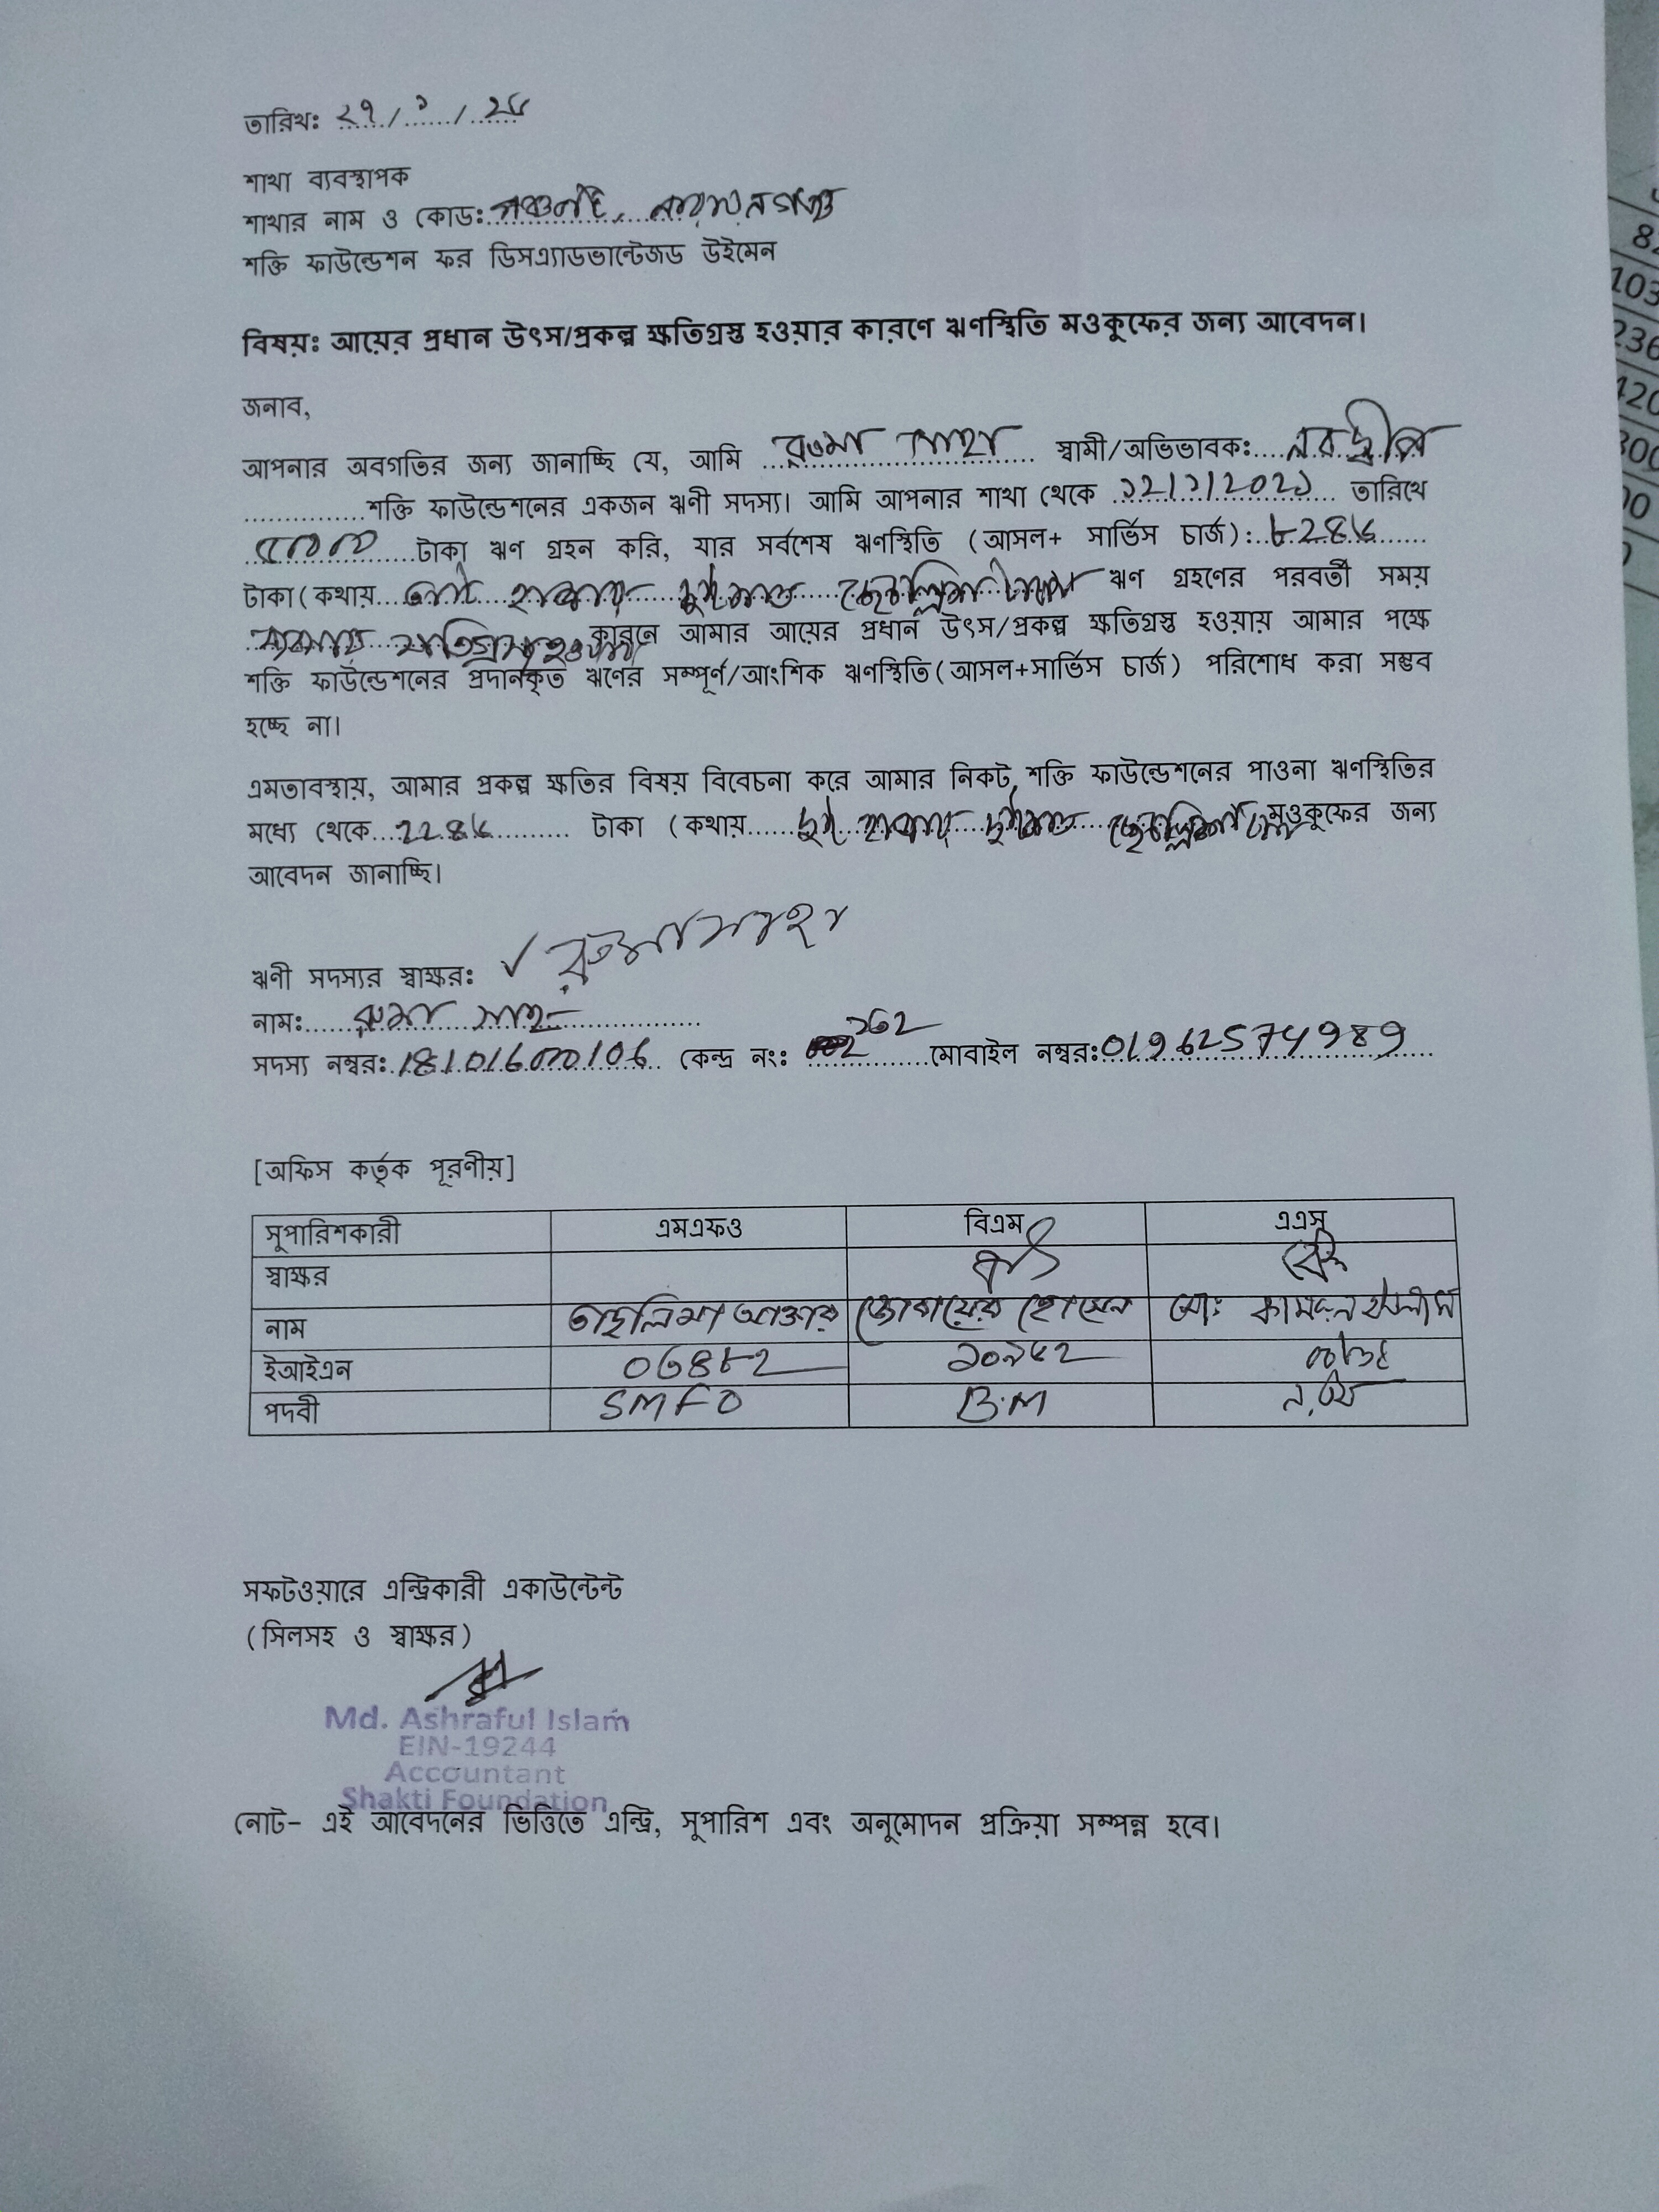 তারিখঃ ২৭/১/২৫
শাখা ব্যবস্থাপক
শাখার নাম ও কোড: নারায়নগঞ্জ
শক্তি ফাউন্ডেশন ফর ডিসএ্যাডভান্টেজড উইমেন
বিষয়ঃ আয়ের প্রধান উৎস/প্রকল্প ক্ষতিগ্রস্ত হওয়ার কারণে ঋণস্থিতি মওকুফের জন্য আবেদন।
জনাব,
আপনার অবগতির জন্য জানাচ্ছি যে, আমি রুমা সাহা স্বামী/অভিভাবক: নবদ্বীপ
শক্তি ফাউন্ডেশনের একজন ঋণী সদস্য। আমি আপনার শাখা থেকে ১২/১/২০২১ তারিখে
টাকা ঋণ গ্রহন করি, যার সর্বশেষ ঋণস্থিতি (আসল+ সার্ভিস চার্জ): ৮২৪৬
টাকা(কথায় আট হাজার দুইশত ছেচল্লিশ টাকা ঋণ গ্রহণের পরবর্তী সময়
ক্ষতিগ্রস্থ হওয়ার কারনে আমার আয়ের প্রধান উৎস/প্রকল্প ক্ষতিগ্রস্ত হওয়ায় আমার পক্ষে
শক্তি ফাউন্ডেশনের প্রদানকৃত ঋণের সম্পূর্ণ/আংশিক ঋণস্থিতি(আসল+সার্ভিস চার্জ) পরিশোধ করা সম্ভব
হচ্ছে না।
এমতাবস্থায়, আমার প্রকল্প ক্ষতির বিষয় বিবেচনা করে আমার নিকট শক্তি ফাউন্ডেশনের পাওনা ঋণস্থিতির
মধ্যে থেকে ২২৪৬ টাকা (কথায় দুই হাজার দুইশত ছেচল্লিশ টাকা মওকুফের জন্য
আবেদন জানাচ্ছি।
ঋণী সদস্যর স্বাক্ষরঃ রুমা সাহা
নামঃ রুমা সাহা
সদস্য নম্বরঃ 181016000106 কেন্দ্র নংঃ 262 মোবাইল নম্বরঃ 01962574989
[অফিস কর্তৃক পূরণীয়]
সুপারিশকারী এমএফও বিএম এএস
স্বাক্ষর
নাম তাছলিমা আক্তার জোবায়ের হোসেন মোঃ
ইআইএন ০৬৪৮২ ১০৯৬২
পদবী SMFO B.M
সফটওয়ারে এন্ট্রিকারী একাউন্টেন্ট
(সিলসহ ও স্বাক্ষর)
Md. Ashraful Islam
EIN-19244
Accountant
Shakti Foundation
নোট- এই আবেদনের ভিত্তিতে এন্ট্রি, সুপারিশ এবং অনুমোদন প্রক্রিয়া সম্পন্ন হবে।